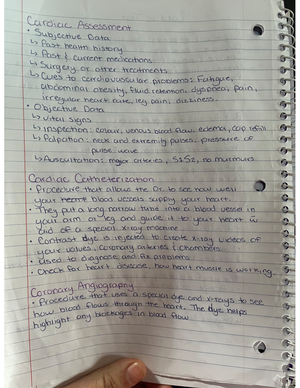 Cardiac Assessment
• Subjective Data
↳ Past health history
↳ Past & current medications
↳ Surgery or other treatments
↳ Cues to cardiovascular problems: Fatigue,
abdominal obesity, fluid retention, dyspnea, pain,
irregular heart rate, leg pain, dizziness.
• Objective Data
↳ vital signs
↳ inspection: colour, venous blood flow, edema, cap refill
↳ Palpation: neck and extremity pulses, pressure of
pulse wave
↳ Auscultation: major arteries, S1S2, no murmurs
Cardiac Catheterization
• Procedure that allows the Dr. to see how well
your heart blood vessels supply your heart.
• They put a long narrow tube into a blood vessel in
your arm or leg and guide it to your heart w
aid of a special xray machine
• Contrast dye is injected to create xray videos of
your valves, coronary arteries & chambers
• Used to diagnose and fix problems
• Check for heart disease, how heart muscle is working.
Coronary Angiography
• Procedure that uses a special dye and x-rays to see
how blood flows through the heart. The dye helps
highlight any blockages in blood flow